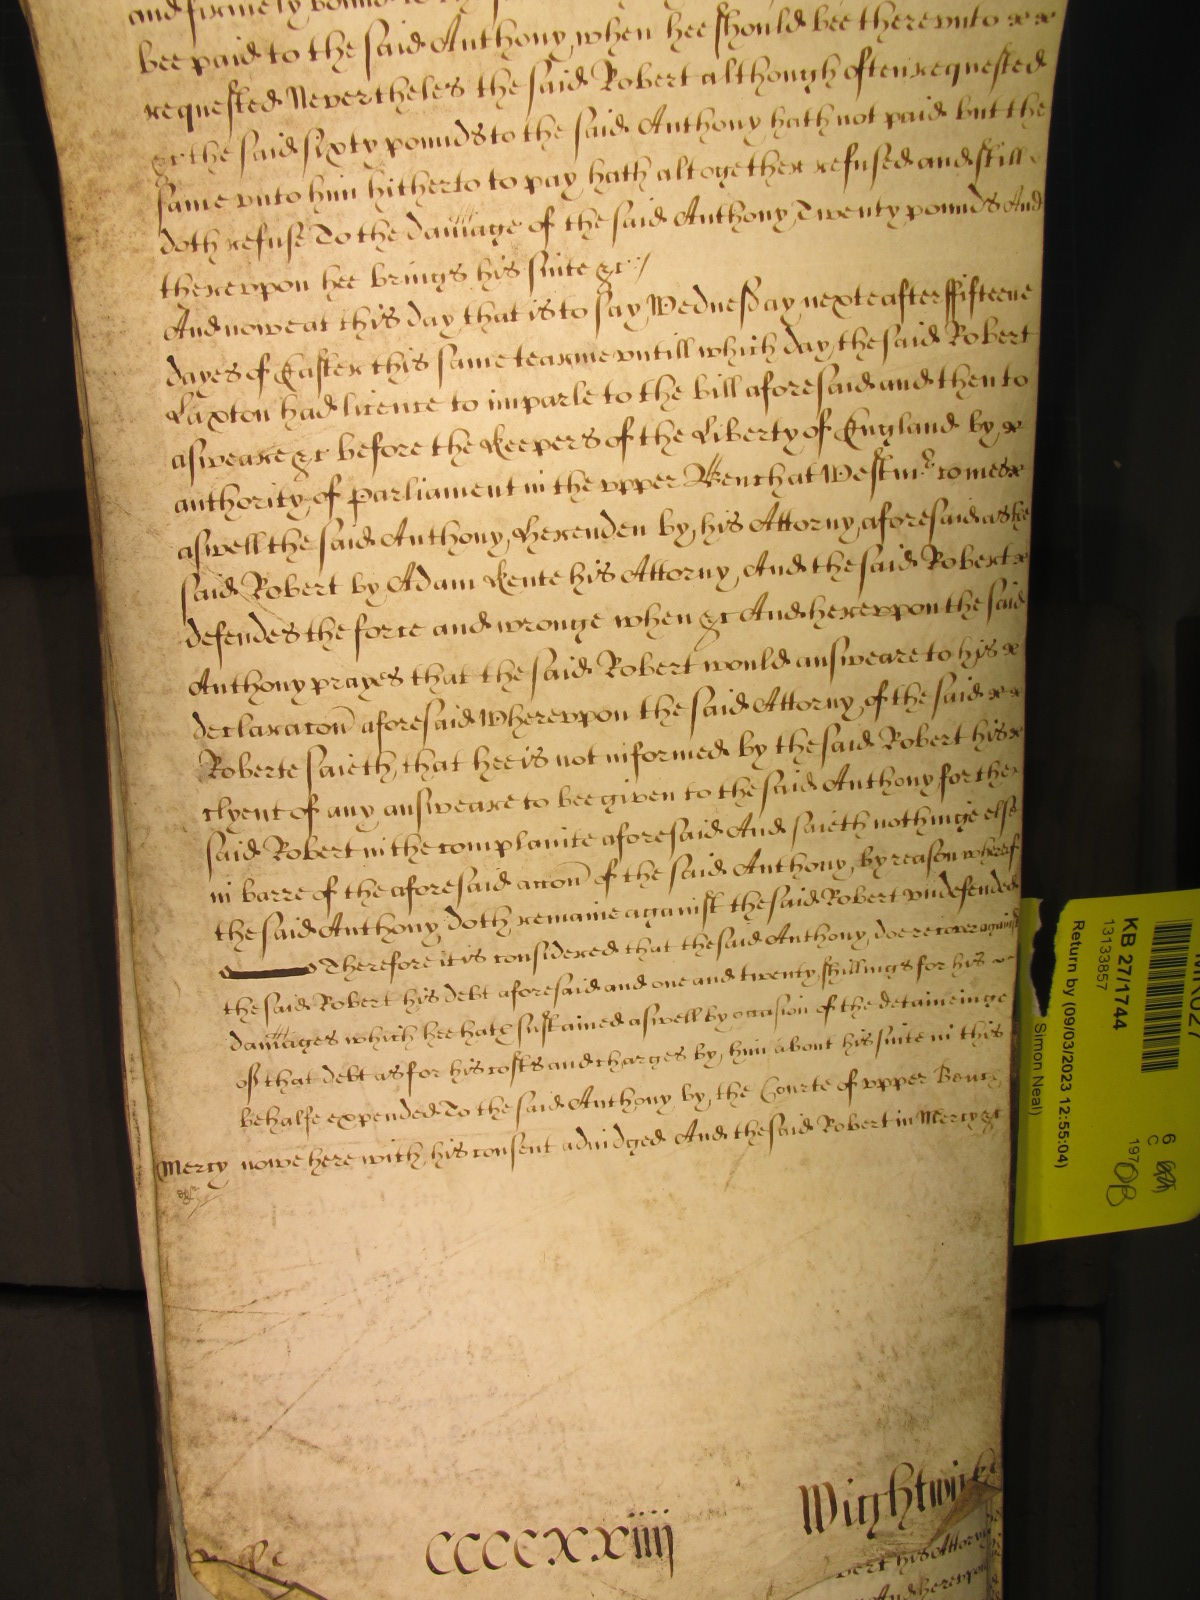 and firmely bound
bee paid to the said Anthony when hee should bee therevnto
requested Nevertheles the said Robert although often requested
&c the said sixty pounds to the said Anthony hath not paid but the
same vnto him hitherto to pay hath altogether refused and still
doth refuse To the damage of the said Anthony Twenty pounds And
therevpon hee brings his suite &c
And nowe at this day that is to say Wednesday nexte after ffifteene
dayes of Easter this same tearme vntill which day the said Robert
Laxton had licence to imparle to the bill aforesaid and then to
answeare &c before the Keepers of the Liberty of England by
authority of Parliament in the vpper Bench at Westmr comes
aswell the said Anthony Herenden by his Attorny aforesaid as the
said Robert by Adam Kente his Attorny And the said Robert
defendes the force and wronge when &c And herevpon the said
Anthony prayes that the said Robert would answeare to his
declaracon aforesaid Wherevpon the said Attorny of the said
Roberte saieth that hee is not informed by the said Robert his
clyent of any answeare to bee given to the said Anthony for the
said Robert in the complainte aforesaid And saieth nothinge else
in barre of the aforesaid accon of the said Anthony by reason whereof
the said Anthony doth remaine against the said Robert vndefended
Therefore it is considered that the said Anthony doe recover against
the said Robert his debt aforesaid and one and twenty shillings for his
damages which hee hath sustained aswell by occasion of the detaineinge
of that debt as for his costs and charges by him about his suite in this
behalfe expended To the said Anthony by the Courte of vpper Bench
Mercy nowe here with his consent adiudged And the said Robert in Mercy &c
CCCCxxiiij
Wightwicke
his Attorny
And herevpon
KB 27/1744
13133857
Return by (09/03/2023 12:55:04)
Simon Neal)
6
C
197